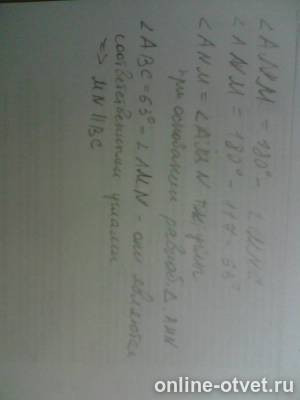 ∠ANM = 180° - ∠MNC
∠ANM = 180° - 117 = 63°
∠ANM = ∠AMN т.к. углы
при основании равноб. Δ AMN
∠ABC = 63° = ∠AMN - они являются
соответственными углами
=> MN || BC
online-otvet.ru